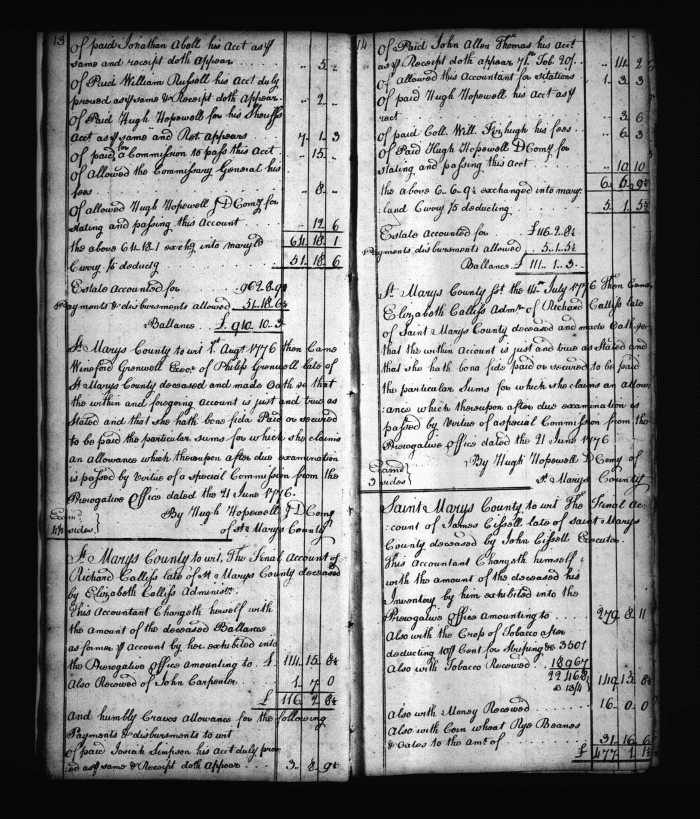 13
Of paid Jonathan Abell his Acct as ⅌
same and receipt doth Appear .. 5 ..
Of Paid William Russell his Acct duly
proved as ⅌ same & Receipt doth Appear .. 2 ..
Of Paid Hugh Hopewell for his Sheriffs
Acct as ⅌ same and Rct Appears 7 1 3
Of paid for a Commission to pass this Acct .. 15 ..
Of allowed the Commissary General his
fees .. 8 ..
Of allowed Hugh Hopewell Jr D Comry for
stating and passing this Account .. 12 6
64 18 1
the above 64.18.1 exchg into maryld
Curry ⅕ deductg 51 18 6
Estate Accounted for 962.8.9
Payments & disbursments allowed 51.18.6
Ballance £ 910.10.3
St Marys County to wit 1st Augt 1776 then Came
Wineford Grenwell Exor of Philip Grenwell late of
St Marys County deceased and made Oath so that
the within and foregoing account is just and true as
Stated and that she hath bona fida Paid or secured
to be paid the particular sums for which she claims
an allowance which thereupon after due examination
is passed by virtue of a special Commission from the
Prerogative Office dated the 21 June 1776.
By Hugh Hopewell Jr D Comy
of St Marys County
sides
St Marys County to wit. The Final Account of
Richard Calliss late of St Marys County deceased
by Elizabeth Calliss Administx
This Accountant Chargeth herself with
the Amount of the deceased Ballance
as former ⅌ Account by her exhibited into
the Prerogative Office Amounting to £ 114 15 8½
Also Received of John Carpenter 1 7 0
£ 116 2 8½
And humbly Craves allowance for the following
Payments & disbursments to wit
Of paid Josiah Simpson his Acct duly prov
ed as ⅌ same & Receipt doth Appear 3 8 9½
14
Of Paid John Allen Thomas his Acct
as ⅌ Receipt doth appear Tob. .. 14 2
Of allowed this Accountant for citations 1 3 3
Of paid Hugh Hopewell his Acct as ⅌
rect .. 3 6
Of paid Coll. Will Fitzhugh his fees .. 6 3
Of Paid Hugh Hopewell D Comy for
stating and passing this Acct .. 10 10
6 6 9½
the above 6..6..9½ exchanged into mary
land Curry ⅕ deducting 5 1 5½
Estate Accounted for £116.2.8½
Payments disbursments allowed 5.1.5½
Ballance £ 111.1.3
St Marys County Sct the 14th July 1776 Then Came
Elizabeth Calliss Admx of Richard Calliss late
of Saint Marys County deceased and made Oath
that the within Account is just and true as Stated and
that she hath bona fida paid or secured to be paid
the particular Sums for which she claims an allow
ance which thereupon after due examination is
passed by Virtue of a special Commission from the
Prerogative Office dated the 21 June 1776
By Hugh Hopewell D Comy of
St Marys County
3 sides
Saint Marys County to wit The Final Ac
count of James Cissell late of Saint Marys
County deceased by John Cissell Executor.
This Accountant Chargeth himself
with the amount of the deceased his
Inventory by him exhibited into the
Prerogative Office Amounting to 279 8 11
Also with the Crop of Tobacco after
deducting ⅌ Cent for 3501
Also with Tobacco Received 18967
22468 149 15 8½
Also with Money Received 16 0 0
Also with Corn wheat Rye Beanes
& Oates to the amt of 31 16 6
£ 477 1 1½